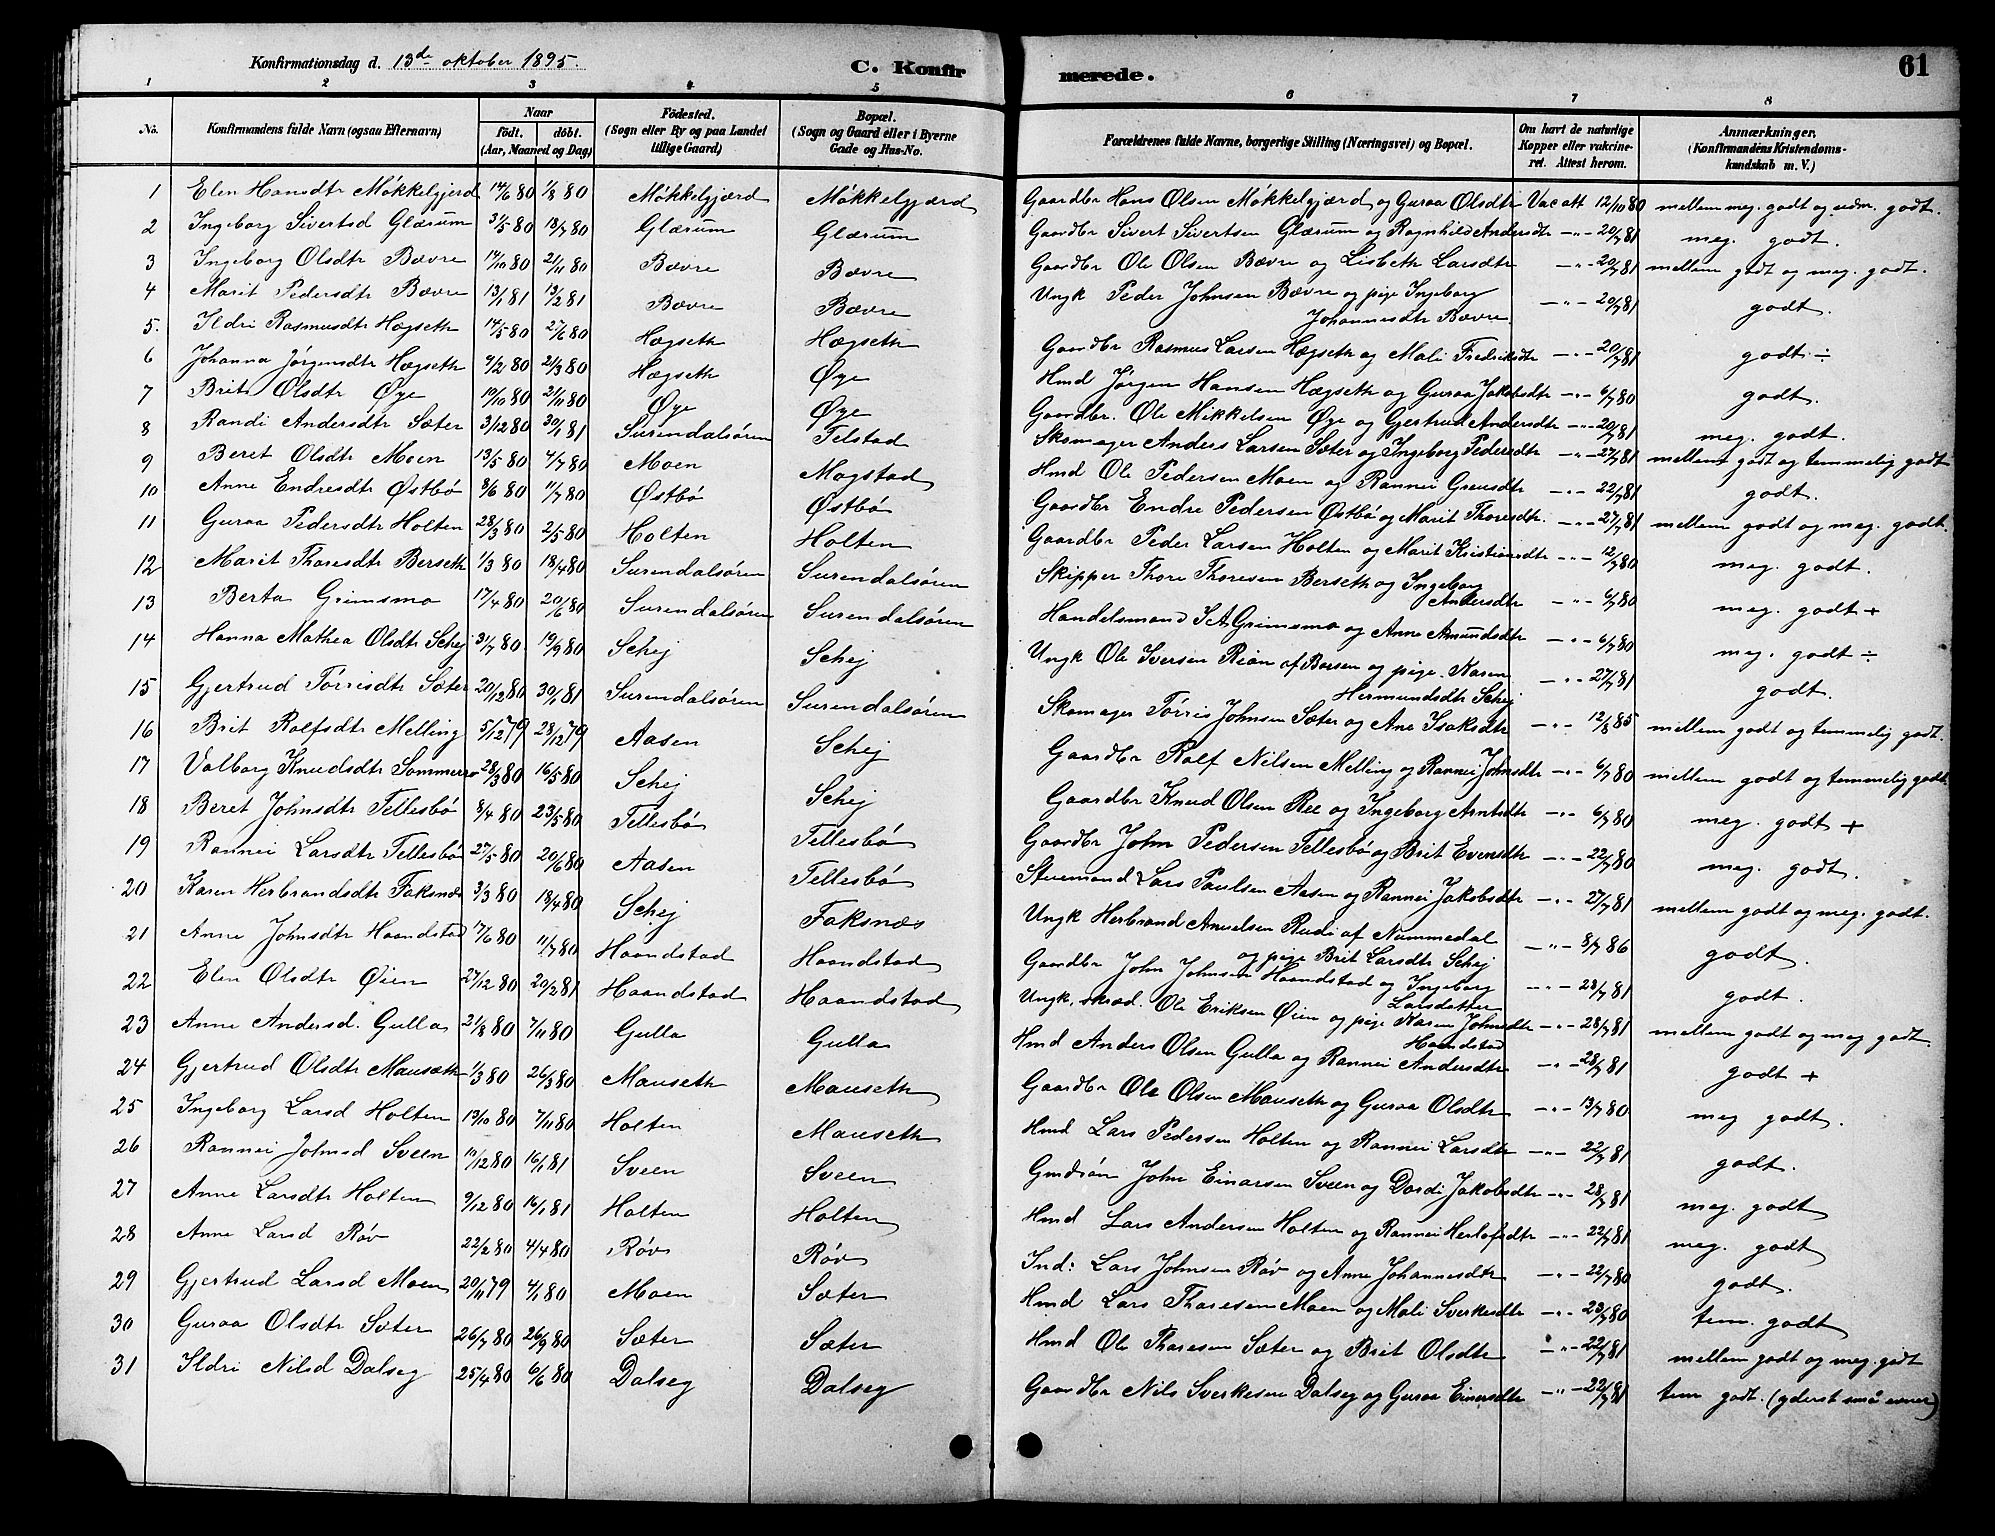 Konfirmationsdag d. 13de oktober 1895. C. Konfirmerede. 61
1 2 3 4 5 6 7 8
No. Konfirmandens fulde Navn (ogsaa Efternavn) Naar født. døbt. (Aar, Maaned og Dag) Fødested. (Sogn eller By og paa Landet tillige Gaard) Bopæl. (Sogn og Gaard eller i Byerne Gade og Hus-No. Forældrenes fulde Navne, borgerlige Stilling (Næringsvei) og Bopæl. Om havt de naturlige Kopper eller vakcineret. Attest herom. Anmærkninger, (Konfirmandens Kristendomskundskab m. V.)
1 Elen Hansdtr Møkkelgjerd 14/6 80 1/8 80 Møkkelgjærd Møkkelgjærd Gaardbr Hans Olsen Møkkelgjærd og Guraa Olsdtr Vac att 12/10 80 mellem meg. godt og udm. godt.
2 Ingeborg Sivertsd Glærum 31/5 80 18/7 80 Glærum Glærum Gaardbr Sivert Sivertsen Glærum og Ragnhild Andersdtr -"- 20/7 81 meg. godt.
3 Ingeborg Olsdtr Bævre 14/10 80 21/11 80 Bævre Bævre Gaardbr Ole Olsen Bævre og Lisbeth Larsdtr -"- 20/7 81 mellem godt og meg. godt.
4 Marit Pedersdtr Bævre 13/1 81 13/2 81 Bævre Bævre Ungk Peder Johnsen Bævre og pige Ingeborg Johannesdtr Bævre -"- 20/7 81 godt.
5. Ildri Rasmusdtr Hægseth 14/5 80 27/6 80 Hægseth Hægseth Gaardbr Rasmus Larsen Hægseth og Mali Fredriksdtr -"- 20/7 81 godt ÷
6 Johanna Jørgensdtr Hægseth 9/2 80 21/3 80 Hægseth Øye Hmd Jørgen Hansen Hægseth og Guraa Jakobsdtr -"- 6/7 80 godt.
7 Brit Olsdtr Øye 19/10 80 21/11 80 Øye Øye Gaardbr. Ole Mikkelsen Øye og Gjertrud Andersdtr -"- 20/7 81 meg. godt.
8 Randi Andersdtr Sæter 3/12 80 30/1 81 Surendalsøren Telstad Skomager Anders Larsen Sæter og Ingeborg Pedersdtr -"- 27/7 81 mellem godt og temmelig godt
9 Beret Olsdtr Moen 13/5 80 4/7 80 Moen Mogstad Hmd Ole Pedersen Moen og Rannei Greusdtr -"- 22/7 81 godt.
10 Anne Endresdtr Østbø 8/6 80 11/7 80 Østbø Østbø Gaardbr Endre Pedersen Østbø og Marit Thoresdtr. -"- 27/7 81 mellem godt og meg. godt.
11 Guraa Pedersdtr Holten 28/3 80 2/5 80 Holten Holten Gaardbr Peder Larsen Holten og Marit Kristiansdtr -"- 12/7 80 meg. godt.
12 Marit Thoresdtr Berseth 1/3 80 18/4 80 Surendalsøren Surendalsøren Skipper Thore Thoresen Berseth og Ingeborg Andersdtr -"- 6/7 80 meg. godt +
13 Berta Grimsmo 17/4 80 20/6 80 Surendalsøren Surendalsøren Handelsmand S. A. Grimsmo og Anne Amundsdtr -"- 6/7 80 meg. godt ÷
14 Hanna Mathea Olsdtr Schej 31/7 80 19/9 80 Schej Schej Ungk Ole Iversen Rian af Børsen og pige Karen Hermundsdtr Schej -"- 27/7 81 godt.
15 Gjertrud Tørrisdtr Sæter 20/12 80 30/1 81 Surendalsøren Surendalsøren Skomager Tørris Johnsen Sæter og Ane Isaksdtr -"- 12/8 85 mellem godt og temmelig godt.
16 Brit Rolfsdtr Melling 5/12 79 28/12 79 Aasen Schej Gaardbr Rolf Nilsen Melling og Rannei Johnsdtr -"- 6/7 80 mellem godt og temmelig godt.
17 Valborg Knudsdtr Sommerro 28/3 80 16/5 80 Schej Schej Gaardbr Knud Olsen Ree og Ingeborg Arntsdtr -"- 6/7 80 meg. godt +
18 Beret Johnsdtr Tellesbø 8/4 80 23/5 80 Tellesbø Tellesbø Gaardbr John Pedersen Tellesbø og Brit Evensdtr -"- 22/7 80 meg. godt.
19 Rannei Larsdtr Tellesbø 27/5 80 20/6 80 Aasen Tellesbø Stuemand Lars Paulsen Aasen og Rannei Jakobsdtr -"- 27/7 81 mellem godt og meg. godt.
20 Karen Herbrandsdtr Faksnæs 3/3 80 18/4 80 Schej Faksnæs Ungk Herbrand Amundsen Rudi af Nummedal og pige Brit Larsdtr Schej -"- 8/7 86 godt.
21 Anne Johnsdtr Haandstad 17/6 80 11/7 80 Haandstad Haandstad Gaardbr John Johnsen Haandstad og Ingeborg Larsdatter -"- 28/7 81 godt.
22 Elen Olsdtr Øien 27/12 80 20/2 81 Haandstad Haandstad Ungk. skræd. Ole Eriksen Øien og pige Karen Johnsdtr Haandstad -"- 28/7 81 mellem godt og meg godt.
23 Anne Andersd. Gulla 21/8 80 7/11 80 Gulla Gulla Hmd Anders Olsen Gulla og Rannei Andersdtr -"- 28/7 81 godt +
24 Gjertrud Olsdtr Mauseth 1/3 80 26/3 80 Mauseth Mauseth Gaardbr Ole Olsen Mauseth og Guraa Olsdtr -"- 13/7 80 meg godt.
25 Ingeborg Larsd Holten 19/10 80 7/11 80 Holten Mauseth Hmd Lars Pedersen Holten og Rannei Larsdtr -"- 22/7 81 godt.
26 Rannei Johnsd Sveen 10/12 80 16/1 81 Sveen Sveen Gmdsøn John Einarsen Sveen og Dordi Jakobsdtr -"- 28/7 81 meg. godt
27 Anne Larsdtr Holten 9/12 80 16/1 81 Holten Holten Hmd Lars Andersen Holten og Rannei Herlofsdtr -"- 22/7 81 meg. godt
28 Anne Larsd Røv 22/2 80 4/4 80 Røv Røv Ind: Lars Johnsen Røv og Anne Johannesdtr -"- 22/7 80 godt.
29 Gjertrud Larsd Moen 20/11 79 4/1 80 Moen Sæter Hmd Lars Tharesen Moen og Mali Sverkesdtr -"- 23/7 80 tem. godt
30 Guraa Olsdtr Sæter 26/7 80 26/9 80 Sæter Sæter Hmd Ole Tharesen Sæter og Brit Olsdtr -"- 22/7 81 mellem godt og meg. godt
31 Ildri Nilsd Dalseg 25/4 80 6/6 80 Dalseg Dalseg Gaardbr Nils Sverkesen Dalseg og Guraa Einersdtr -"- 22/7 81 tem godt. (yderst små evner)